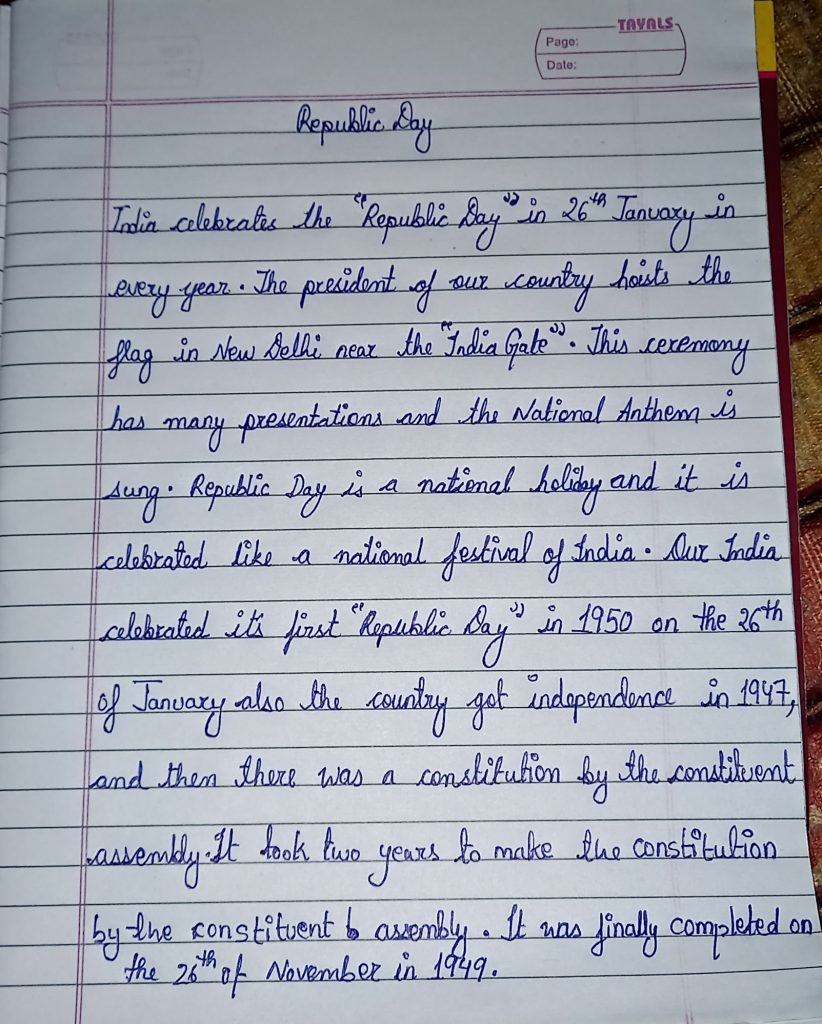 TAYALS
Page:
Date:
Republic Day
India celebrates the "Republic Day" in 26th January in
every year. The president of our country hoists the
flag in New Delhi near the "India Gate". This ceremony
has many presentations and the National Anthem is
sung. Republic Day is a national holiday and it is
celebrated like a national festival of India. Our India
celebrated it's first "Republic Day" in 1950 on the 26th
of January also the country got independence in 1947,
and then there was a constitution by the constituent
assembly. It took two years to make the constitution
by the constituent assembly. It was finally completed on
the 26th of November in 1949.